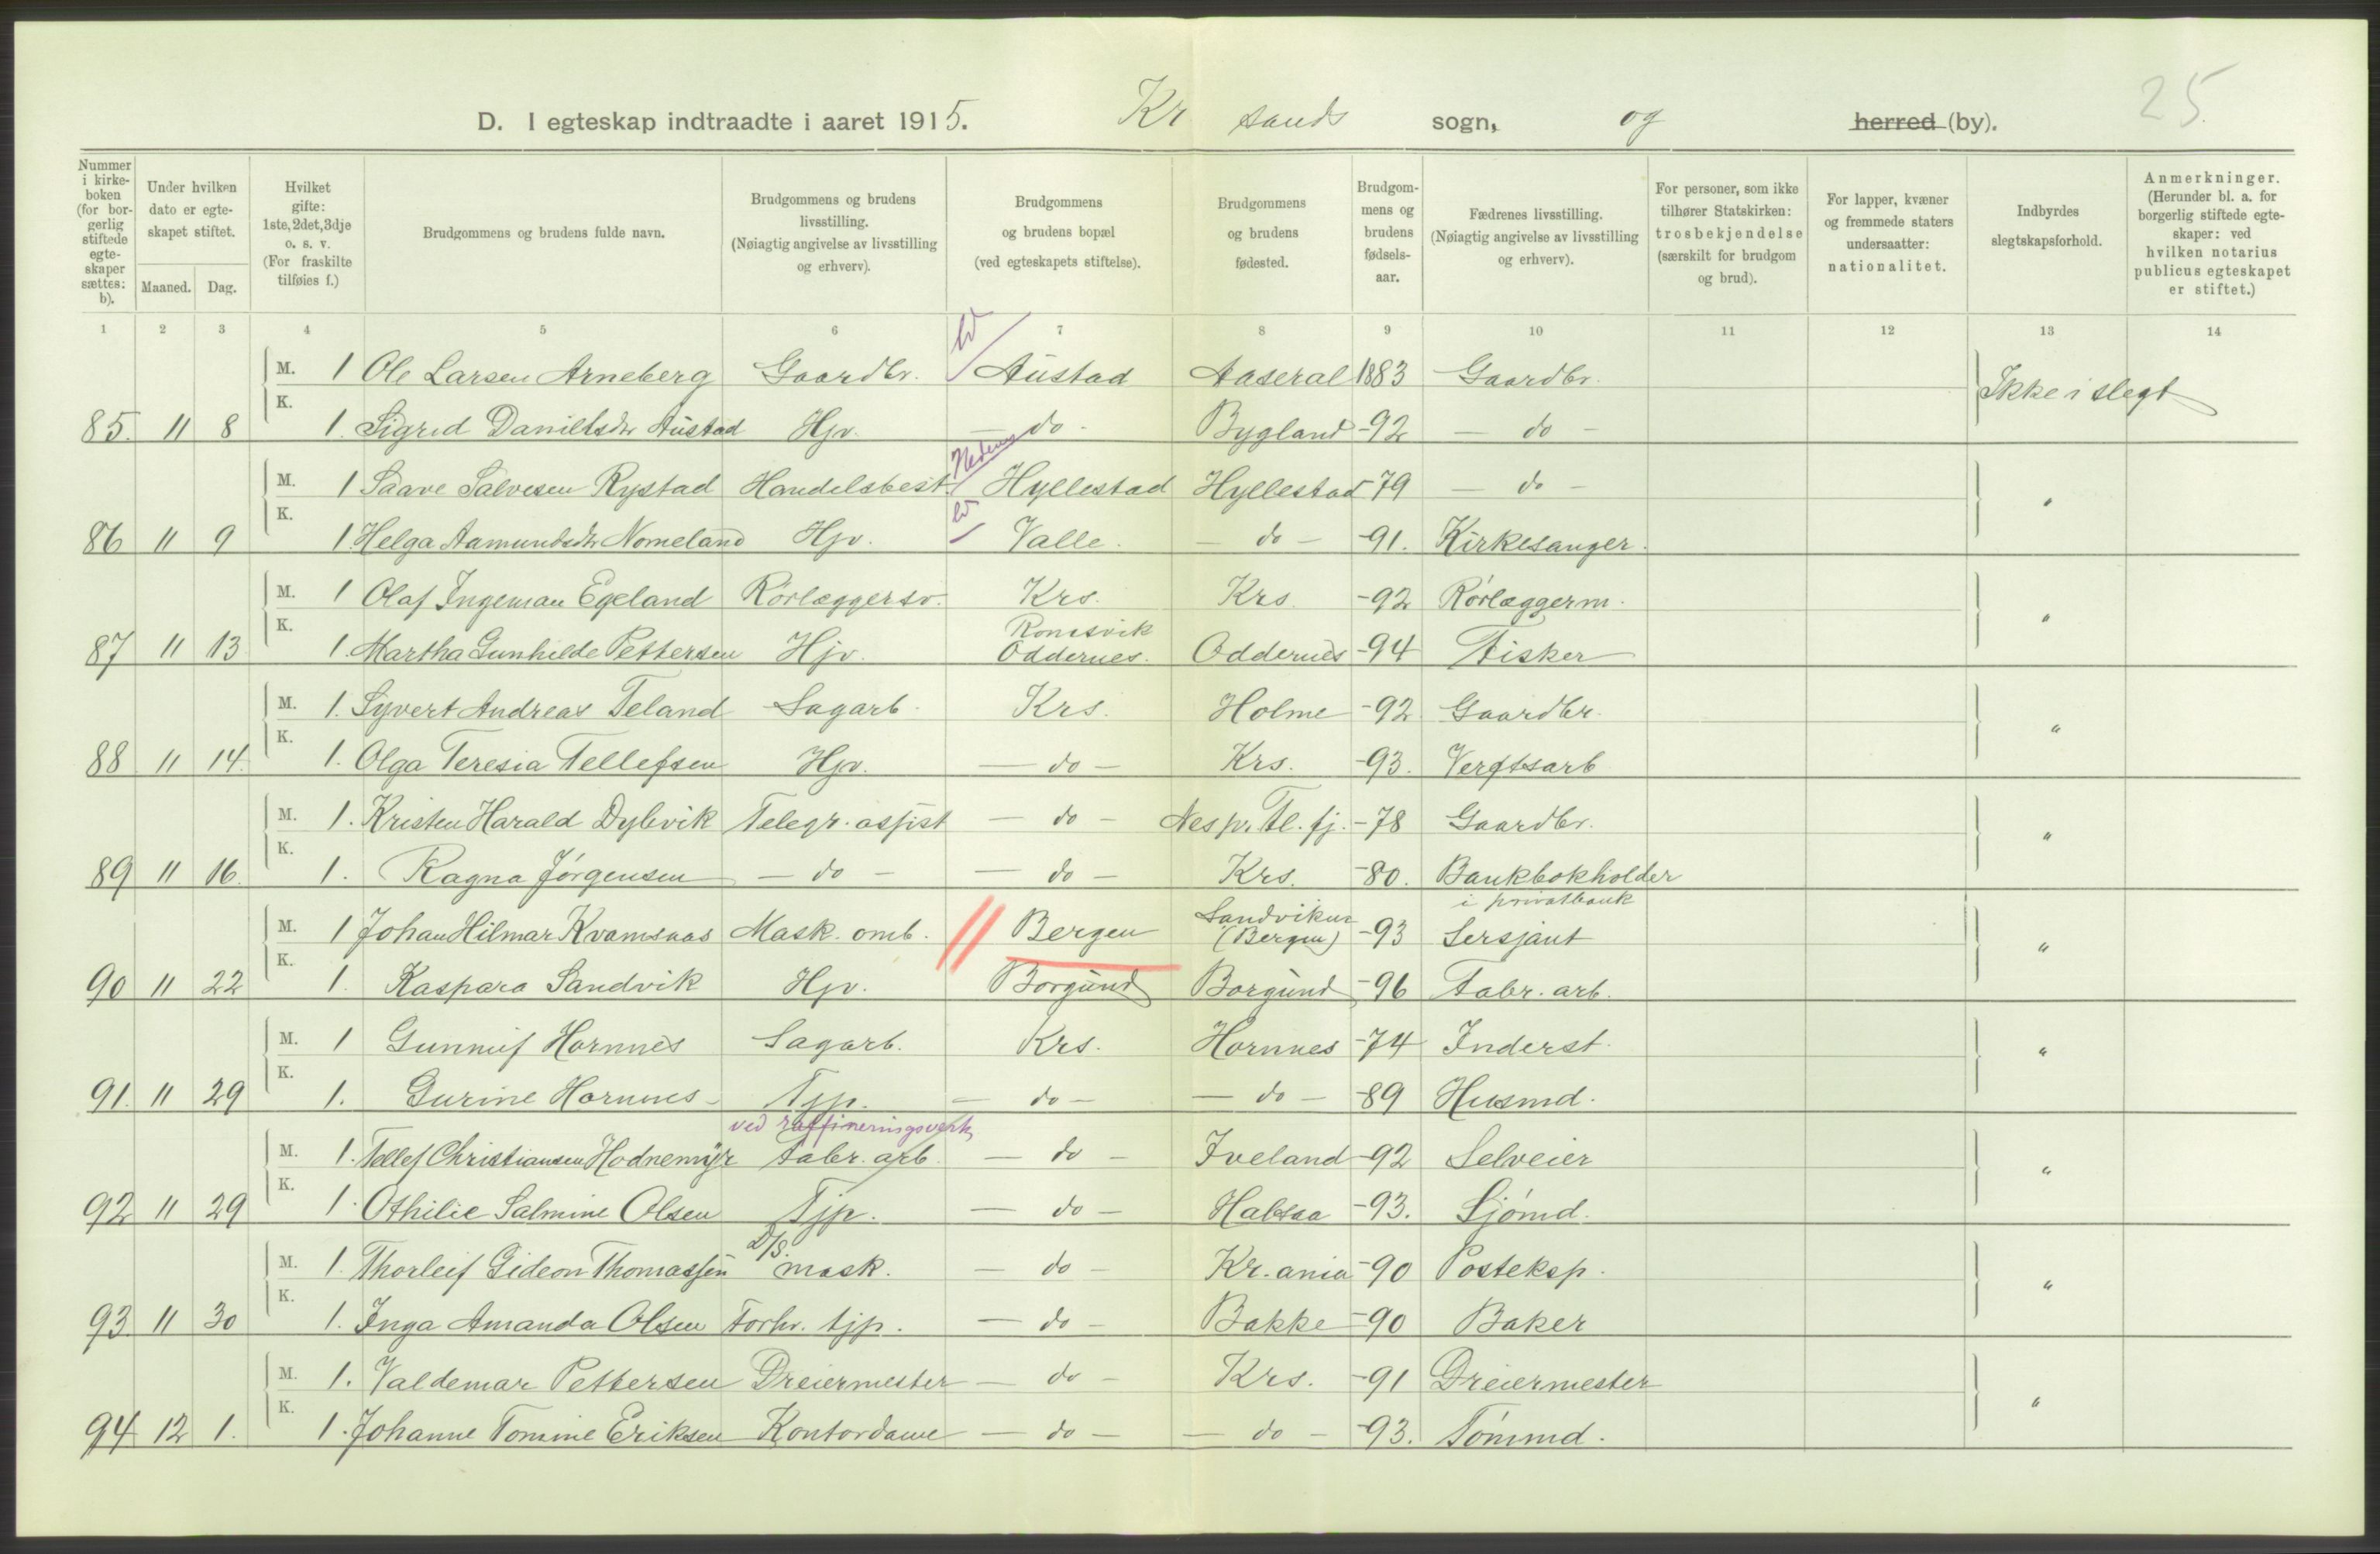 25
D. I egteskap indtraadte i aaret 1915. Kr sands sogn, og herred (by).
Nummer i kirkeboken (for borgerlig stiftede egteskaper sættes: b).
Under hvilken dato er egteskapet stiftet.
Maaned. Dag.
Hvilket gifte: 1ste, 2det, 3dje o. s. v. (For fraskilte tilføies f.)
Brudgommens og brudens fulde navn.
Brudgommens og brudens livsstilling. (Nøiagtig angivelse av livsstilling og erhverv).
Brudgommens og brudens bopæl (ved egteskapets stiftelse).
Brudgommens og brudens fødested.
Brudgommens og brudens fødselsaar.
Fædrenes livsstilling. (Nøiagtig angivelse av livsstilling og erhverv).
For personer, som ikke tilhører Statskirken: trosbekjendelse (særskilt for brudgom og brud).
For lapper, kvæner og fremmede staters undersaatter: nationalitet.
Indbyrdes slegtskapsforhold.
Anmerkninger. (Herunder bl. a. for borgerlig stiftede egteskaper: ved hvilken notarius publicus egteskapet er stiftet.)
1 2 3 4 5 6 7 8 9 10 11 12 13 14
M. 1 Ole Larsen Arneberg Gaardbr. Austad Aaseral 1883 Gaardbr. Ikke i slegt
85. 11 8 K. 1. Sigrid Danielsdtr Austad Hjv. - do - Bygland -92 - do -
M. 1 Saave Salvesen Rystad Handelsbest. Hyllestad Hyllestad -79 - do - "
86 11 9 K. 1. Helga Aamundsdtr Nomeland Hjv. Valle. - do - -91. Kirkesanger.
M. 1 Olaf Ingeman Egeland Rörlæggersv. Krs. Krs. -92 Rörlæggerm. "
87 11 13 K. 1. Martha Gunhilde Pettersen Hjv. Ronesvik Oddernes. Oddernes -94 Fisker
M. 1. Syvert Andreas Teland Sagarb. Krs. Holme -92 Gaardbr. "
88 11 14. K. 1. Olga Teresia Tellefsen Hjv. - do - Krs. -93. Verftsarb
M. 1. Kristen Harald Dybvik Telegr. assist - do - Nes pr. Fl.fj. -78 Gaardbr. "
89 11 16. K. 1. Ragna Jörgensen - do - - do - Krs. -80. Bankbokholder i privatbank
M. 1 Johan Hilmar Kvamsaas Mask. omb. Bergen Sandviken (Bergen) -93 Sersjant "
90 11 22 K. 1. Kaspara Sandvik Hjv. Borgund Borgund -96 Fabr. arb.
M. 1 Gunnuf Hornnes Sagarb. Krs. Hornnes -74 Inderst. "
91. 11 29 K. 1. Gurine Hornnes Tjp. - do - - do - -89 Husmd.
ved raffineringsverk
M. 1. Tellef Christiansen Hodnemyr Fabr. arb. - do - Iveland -92 Selveier "
92 11 29 K. 1. Othilie Salmine Olsen Tjp. - do - Halsaa -93. Sjömd.
M. 1. Thorleif Gideon Thomassen D/S. mask. - do - Kr.ania -90 Posteksp. "
93. 11 30 K. 1. Inga Amanda Olsen Forhv. tjp. - do - Bakke -90 Baker
M. 1. Valdemar Pettersen Dreiermester - do - Krs. -91 Dreiermester "
94 12 1. K. 1. Johanne Tomine Eriksen Kontordame - do - - do - -93. Tömmd.